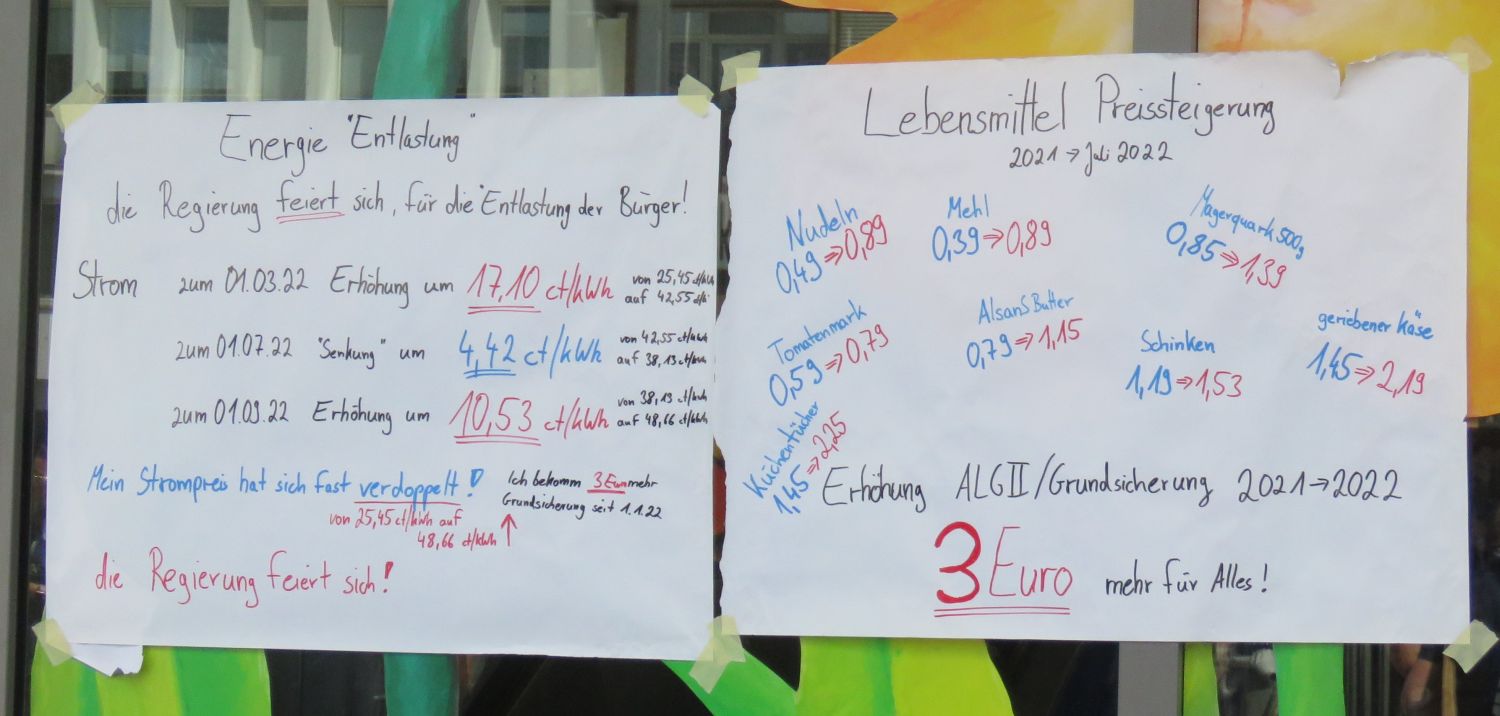 Energie "Entlastung"
die Regierung feiert sich, für die "Entlastung der Bürger!
Strom zum 01.03.22 Erhöhung um 17,10 ct/kWh von 25,45 ct/kWh
auf 42,55 ct/k
zum 01.07.22 "Senkung" um 4,42 ct/kWh von 42,55 ct/kWh
auf 38,13 ct/kWh
zum 01.09.22 Erhöhung um 10,53 ct/kWh von 38,13 ct/kWh
auf 48,66 ct/kWh
Mein Strompreis hat sich fast verdoppelt!
von 25,45 ct/kWh auf
48,66 ct/kWh
Ich bekomm 3 Euro mehr
Grundsicherung seit 1.1.22
die Regierung feiert sich!
Lebensmittel Preissteigerung
2021 → Juli 2022
Nudeln
0,49 ⇒ 0,89
Mehl
0,39 ⇒ 0,89
Magerquark 500g
0,85 ⇒ 1,39
Tomatenmark
0,59 ⇒ 0,79
AlsanS Butter
0,79 ⇒ 1,15
Schinken
1,19 ⇒ 1,53
geriebener Käse
1,45 ⇒ 2,19
Küchentücher
1,45 ⇒ 2,25
Erhöhung ALG II/Grundsicherung 2021 → 2022
3 Euro mehr für Alles!